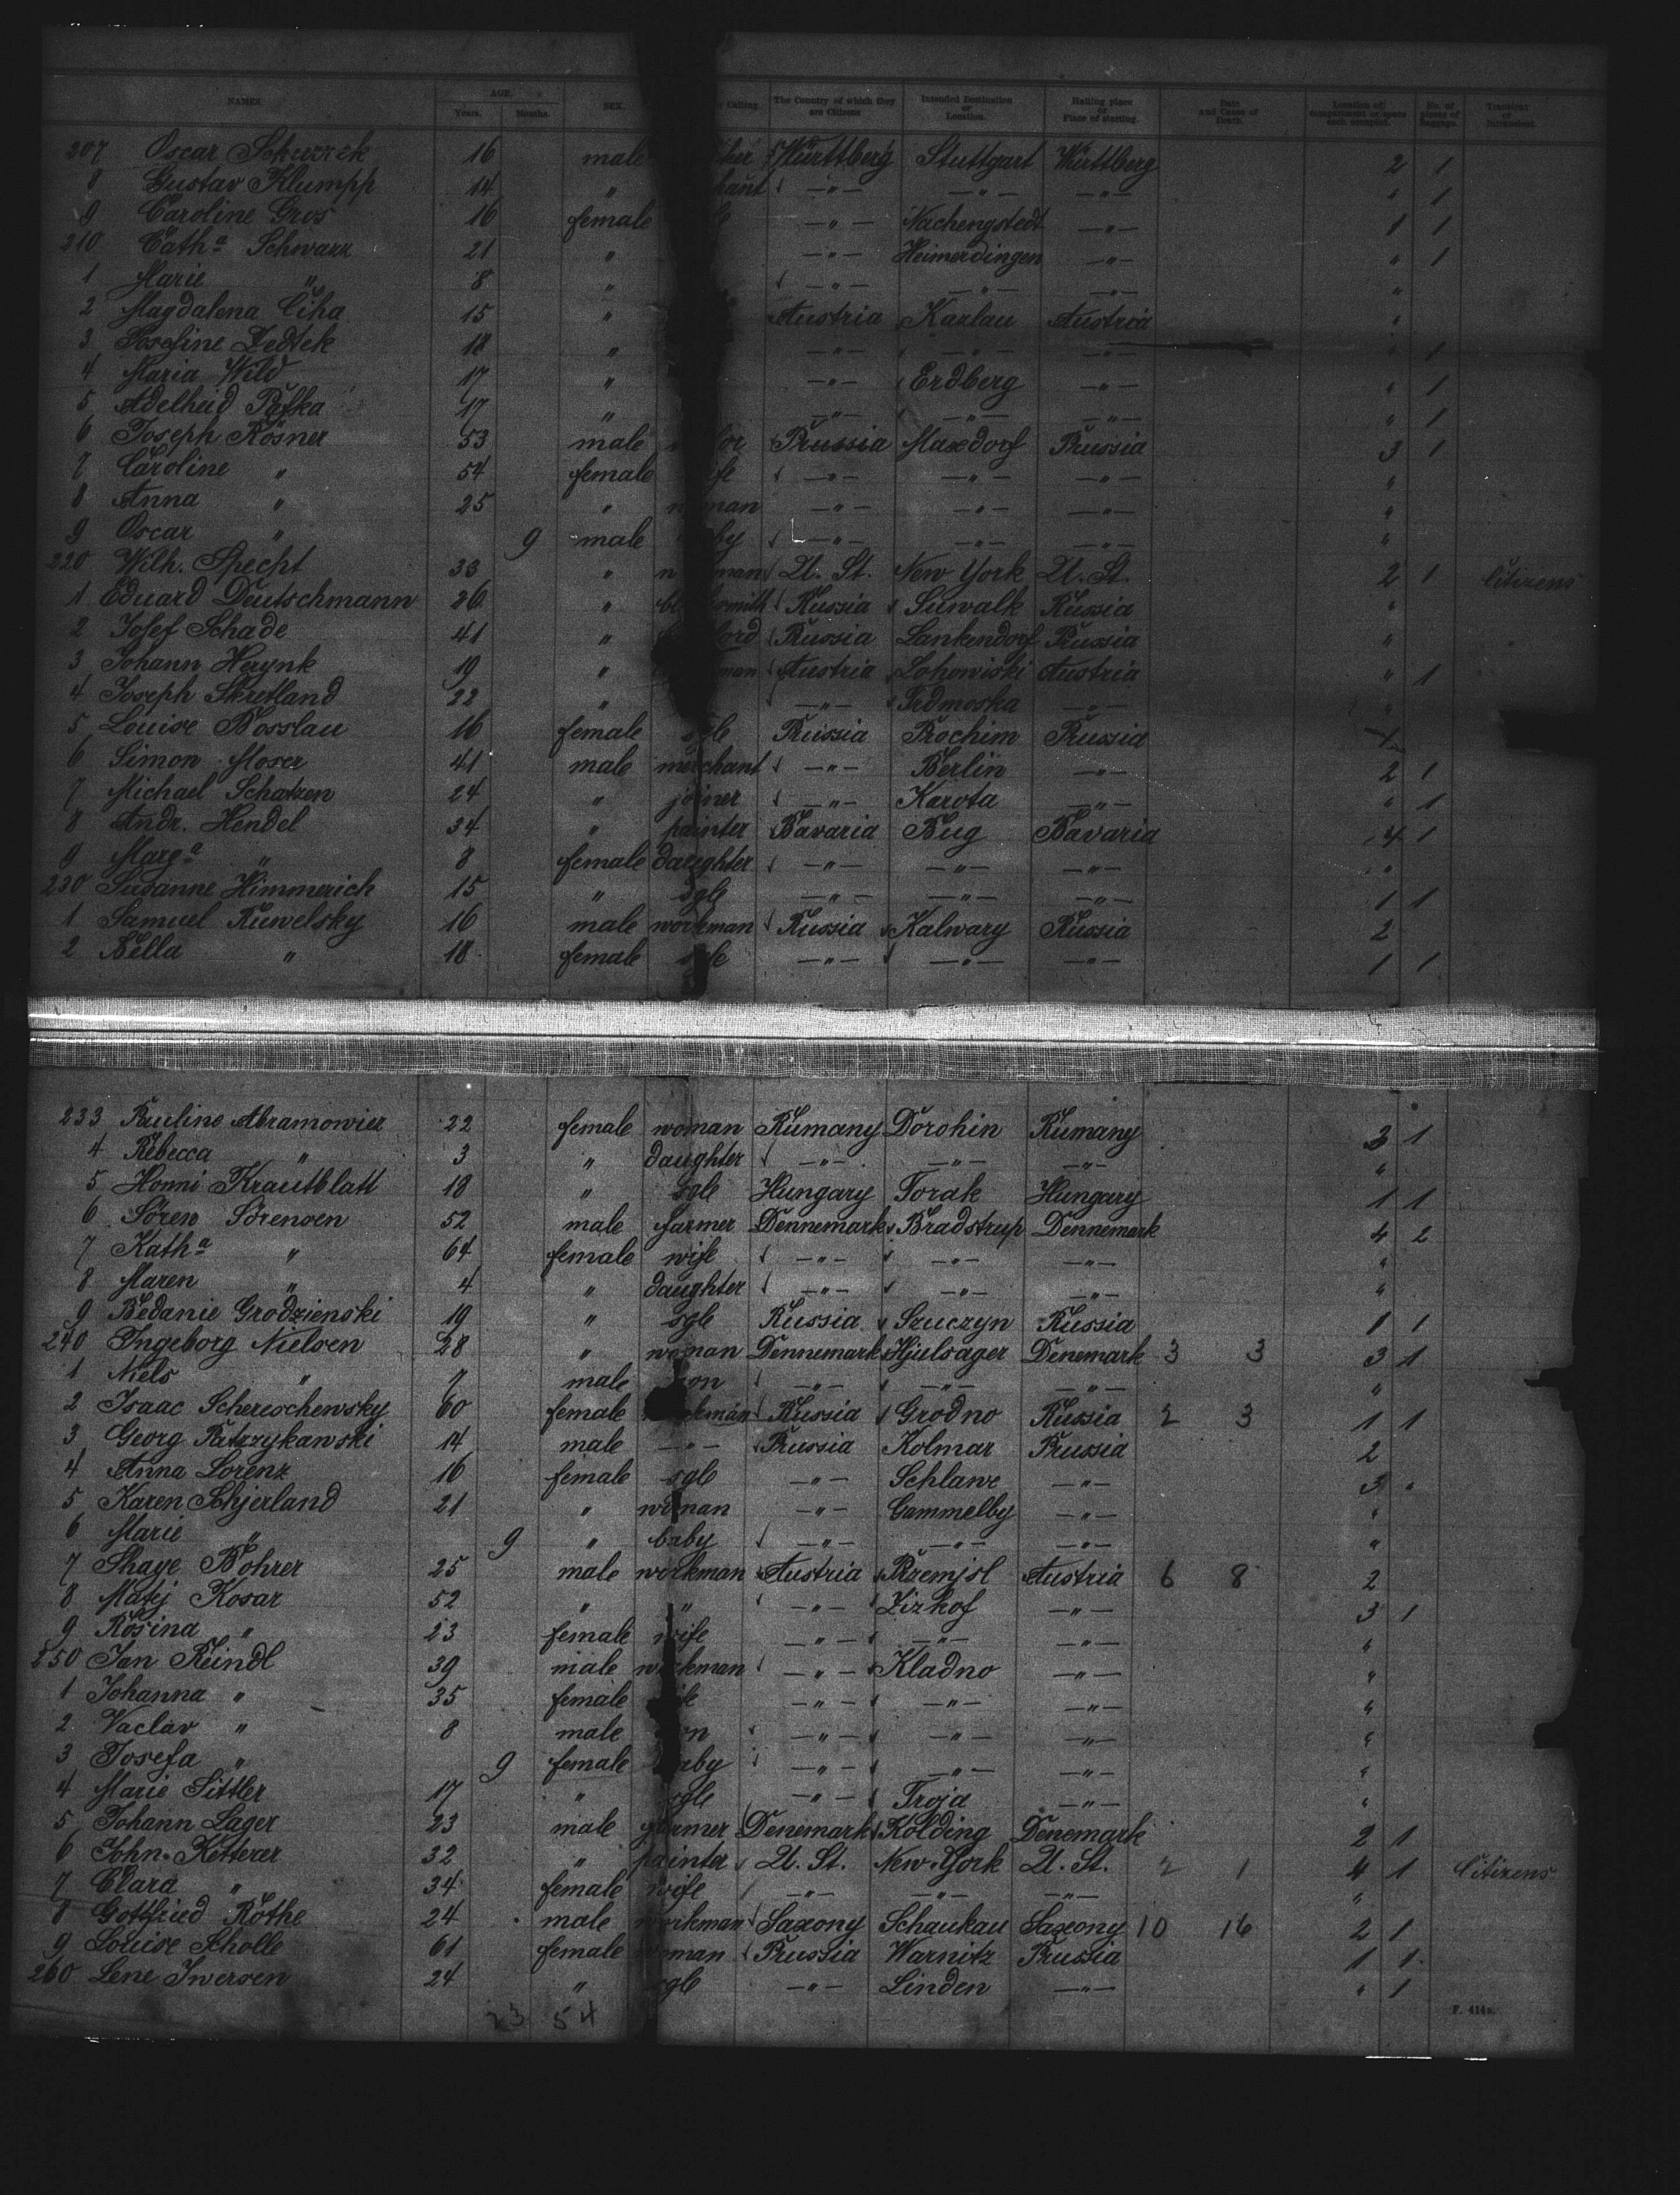 NAMES. AGE. Years. Months. SEX. Calling. The Country of which they are Citizens Intended Destination or Location. Halting place or Place of starting. Date and Cause of Death. Location of compartment or space each occupied. No. of pieces of baggage. Transient or Intransient.
207 Oscar 16 male Württberg Stuttgart Württberg 2 1
8 Gustav Klumpp 14 " — " — — " — — " — " 1
9 Caroline Gros 16 female — " — Nachengstedt — " — 1 1
210 Catha Schwarz 21 " — " — Heimerdingen — " — " 1
1 Marie " 8 " — " — — " — — " — "
2 Magdalena Ciha 15 " Austria Karlau Austria "
3 Josefine Dedtek 18 " — " — — " — — " — " 1
4 Maria Wild 17 " — " — Erdberg — " — " 1
5 Adelheid 17 " — " — — " — — " — " 1
6 Joseph Rösner 53 male Prussia Maxdorf Prussia 3 1
7 Caroline " 54 female — " — — " — — " — "
8 Anna " 25 " — " — — " — — " — "
9 Oscar " 9 male — " — — " — — " — "
220 Wilh. Specht 33 " U. St. New York U. St. 2 1 Citizens
1 Eduard Deutschmann 26 " Russia Suwalk Russia "
2 Josef Schade 41 " Prussia Lankendorf Prussia "
3 Johann Herynk 19 " Austria Lohowiski Austria " 1
4 Joseph Skretland 22 " — " — — " — "
5 Louise Bosslau 16 female sgle Prussia Prochim Prussia
6 Simon Moser 41 male merchant — " — Berlin — " — 2 1
7 Michael Schatzen 24 " joiner — " — Karota — " — " 1
8 Andr. Hendel 34 " painter Bavaria Bug Bavaria 4 1
9 Marga " 8 female daughter — " — — " — — " — "
230 Susanne Himmerich 15 " sgle — " — — " — — " — 1 1
1 Samuel Ruwelsky 16 male workman Russia Kalwary Russia 2
2 Bella " 18 female sgle — " — — " — — " — 1 1
233 Pauline Abramowicz 22 female woman Rumany Dorohin Rumany 3 1
4 Rebecca " 3 " daughter — " — — " — — " — "
5 Honni Krautblatt 18 " sgle Hungary Torak Hungary 1 1
6 Sören Sörensen 52 male farmer Dennemark Bradstrup Dennemark 4 2
7 Katha " 64 female wife — " — — " — — " — "
8 Maren " 4 " daughter — " — — " — — " — "
9 Bedanie Grodzienski 19 " sgle Russia Szuczyn Russia 1 1
240 Ingeborg Nielsen 28 " woman Dennemark Hjulsager Denemark 3 3 3 1
1 Niels " 7 male son — " — — " — — " — "
2 Isaac Schereschewsky 60 female workman Russia Grodno Russia 2 3 1 1
3 Georg Patrzykawski 14 male — " — Prussia Kolmar Prussia 2
4 Anna Lorenz 16 female sgle — " — Schlawe — " — 3 "
5 Karen Schjerland 21 " woman — " — Gammelby — " — "
6 Marie " 9 " baby — " — — " — — " — "
7 Shaye Bohrer 25 male workman Austria Przemjsl Austria 6 8 2
8 Matej Kosar 52 " " — " — Zizkof — " — 3 1
9 Rosina " 23 female wife — " — — " — — " — "
250 Jan Reindl 39 male workman — " — Kladno — " — "
1 Johanna " 35 female wife — " — — " — — " — "
2 Vaclav " 8 male son — " — — " — — " — "
3 Josefa " 9 female baby — " — — " — — " — "
4 Marie Sittler 17 " sgle — " — Troja — " — "
5 Johann Lager 23 male Denemark Kolding Denemark 2 1
6 John Ketterer 32 " painter U. St. New York U. St. 2 1 4 1 Citizens
7 Clara " 34 female wife — " — — " — — " — "
8 Gottfried Röthe 24 male workman Saxony Schaukau Saxony 10 16 2 1
9 Louise Scholle 61 female woman Prussia Warnitz Prussia 1 1
260 Lene Iwersen 24 " sgle — " — Linden — " — " 1
23 54
F. 414a.